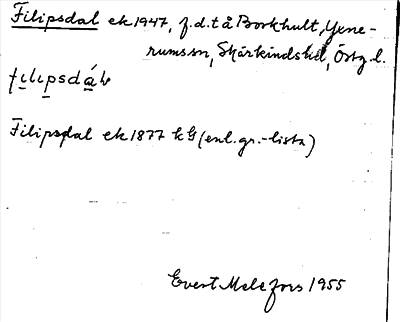 Filipsdal ek 1947, f.d. t å Borkhult, Yxne-
rums sn, Skärkinds hd, Östg. l.
filipsdáɫ
Filipsdal ek 1877 k G (enl. gr.-lista)
Evert Melefors 1955